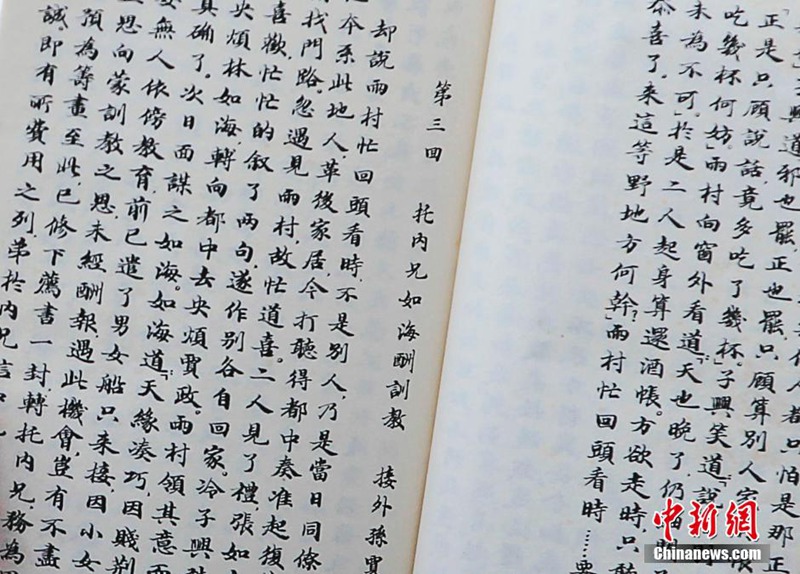 人都只怕是那正
道邪也罷,正也罷,只顧算別人家
「正是只顧說話,竟多吃了幾杯。」子興笑道:「說
吃幾杯何妨。」雨村向窗外看道:「天也晚了,仍
未為不可。」於是二人起身算還酒帳。方欲走時,只聽
恭喜了。來這等野地方何幹?」雨村忙回頭看時……要
第三回 托內兄如海酬訓教 接外孫賈
却說雨村忙回頭看時,不是別人,乃是當日同僚
本系此地人,革後家居,今打聽得都中奏准起復
找門路。忽遇見雨村,故忙道喜。二人見了禮,張如
喜歡,忙忙的叙了兩句,遂作別各自回家。冷子興
央煩林如海,轉向都中去央煩賈政。雨村領其意而
真确了。次日面謀之如海。如海道:「天緣凑巧,因賤荆
無人依傍教育,前已遣了男女船只來接,因小女
思向蒙訓教之恩,未經酬報,遇此機會,豈有不盡
預為籌畫至此,已修下薦書一封,轉托內兄,務為
誠,即有所費用之列,弟於內兄信
中新网
Chinanews.com